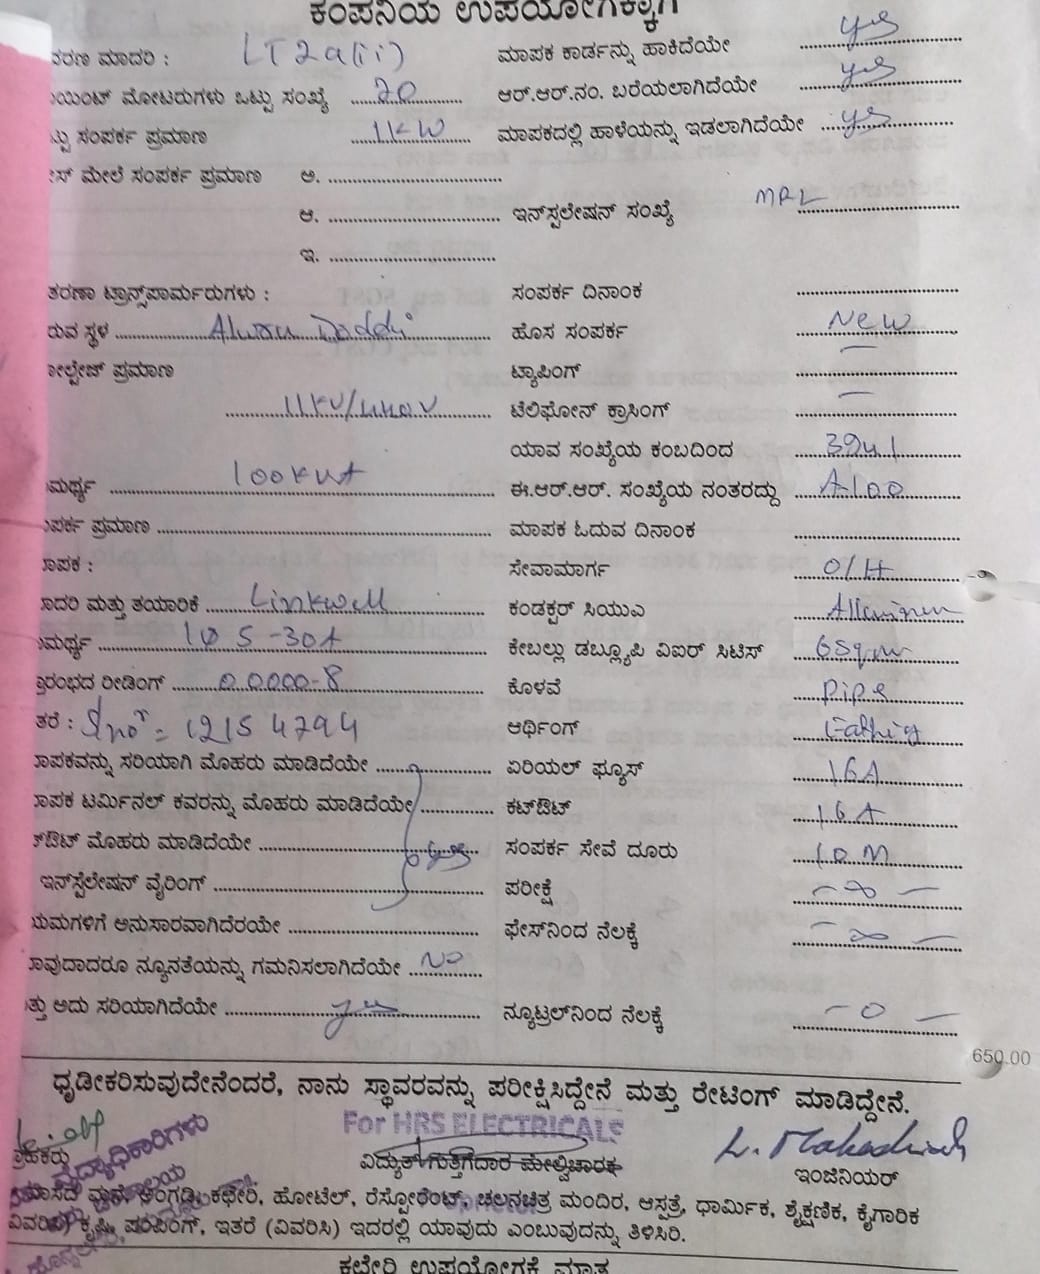 ಕಂಪನಿಯ ಉಪಯೋಗಕ್ಕಾಗಿ
ವರಣ ಮಾದರಿ : LT2a(ii) ಮಾಪಕ ಕಾರ್ಡನ್ನು ಹಾಕಿದೆಯೇ yes
ಯಿಂಟ್ ಮೋಟರುಗಳು ಒಟ್ಟು ಸಂಖ್ಯೆ 20 ಆರ್.ಆರ್.ನಂ. ಬರೆಯಲಾಗಿದೆಯೇ yes
ಟ್ಟು ಸಂಪರ್ಕ ಪ್ರಮಾಣ 1KW ಮಾಪಕದಲ್ಲಿ ಹಾಳೆಯನ್ನು ಇಡಲಾಗಿದೆಯೇ yes
ಸ್ ಮೇಲೆ ಸಂಪರ್ಕ ಪ್ರಮಾಣ ಅ.
ಆ. ಇನ್‌ಸ್ಟಲೇಷನ್ ಸಂಖ್ಯೆ MRL
ಇ.
ತರಣಾ ಟ್ರಾನ್ಸ್‌ಪಾರ್ಮರುಗಳು : ಸಂಪರ್ಕ ದಿನಾಂಕ
ರುವ ಸ್ಥಳ Doddi ಹೊಸ ಸಂಪರ್ಕ New
ೋಲ್ಟೇಜ್ ಪ್ರಮಾಣ ಟ್ಯಾಪಿಂಗ್ —
11KV/440V ಟೆಲಿಫೋನ್ ಕ್ರಾಸಿಂಗ್ —
ಯಾವ ಸಂಖ್ಯೆಯ ಕಂಬದಿಂದ
ಮರ್ಥ್ಯ 100KVA ಈ.ಆರ್.ಆರ್. ಸಂಖ್ಯೆಯ ನಂತರದ್ದು A100
ಪರ್ಕ ಪ್ರಮಾಣ ಮಾಪಕ ಓದುವ ದಿನಾಂಕ
ಾಪಕ : ಸೇವಾಮಾರ್ಗ O/H
ಾದರಿ ಮತ್ತು ತಯಾರಿಕೆ Linkwell ಕಂಡಕ್ಟರ್ ಸಿಯುಎ
ಮರ್ಥ್ಯ 1Ø 5-30A ಕೇಬಲ್ಲು ಡಬ್ಲ್ಯೂಪಿ ವಿಐರ್ ಸಿಟಿಸ್ 6sqmm
ಾರಂಭದ ರೀಡಿಂಗ್ 00000-8 ಕೊಳವೆ Pipe
ತರೆ : Slno = 12154794 ಆರ್ಥಿಂಗ್ Eathing
ಾಪಕವನ್ನು ಸರಿಯಾಗಿ ಮೊಹರು ಮಾಡಿದೆಯೇ ಏರಿಯಲ್ ಫ್ಯೂಸ್ 16A
ಾಪಕ ಟರ್ಮಿನಲ್ ಕವರನ್ನು ಮೊಹರು ಮಾಡಿದೆಯೇ ಕಟ್‌ಔಟ್ 16A
ಔಟ್ ಮೊಹರು ಮಾಡಿದೆಯೇ yes ಸಂಪರ್ಕ ಸೇವೆ ದೂರು 10M
ಇನ್‌ಸ್ಟೆಲೇಷನ್ ವೈರಿಂಗ್ ಪರೀಕ್ಷೆ — ∞ —
ಯಮಗಳಿಗೆ ಅನುಸಾರವಾಗಿದೆರಯೇ ಫೇಸ್‌ನಿಂದ ನೆಲಕ್ಕೆ — ∞ —
ಾವುದಾದರೂ ನ್ಯೂನತೆಯನ್ನು ಗಮನಿಸಲಾಗಿದೆಯೇ NO
ತ್ತು ಅದು ಸರಿಯಾಗಿದೆಯೇ yes ನ್ಯೂಟ್ರಲ್‌ನಿಂದ ನೆಲಕ್ಕೆ — 0 —
650.00
ಧೃಡೀಕರಿಸುವುದೇನೆಂದರೆ, ನಾನು ಸ್ಥಾವರವನ್ನು ಪರೀಕ್ಷಿಸಿದ್ದೇನೆ ಮತ್ತು ರೇಟಿಂಗ್ ಮಾಡಿದ್ದೇನೆ.
For HRS ELECTRICALS
ಗ್ರಾಹಕರು ವಿದ್ಯುತ್ ಗುತ್ತಿಗೆದಾರ ಮೇಲ್ವಿಚಾರಕ ಇಂಜಿನಿಯರ್
ವೈದ್ಯಾಧಿಕಾರಿಗಳು
ಮನೆ, ಅಂಗಡಿ, ಕಛೇರಿ, ಹೋಟೆಲ್, ರೆಸ್ಟೋರೆಂಟ್, ಚಲನಚಿತ್ರ ಮಂದಿರ, ಆಸ್ಪತ್ರೆ, ಧಾರ್ಮಿಕ, ಶೈಕ್ಷಣಿಕ, ಕೈಗಾರಿಕ
ವಿವರಿಸಿ) ಕೃಷಿ, ಪಂಪಿಂಗ್, ಇತರೆ (ವಿವರಿಸಿ) ಇದರಲ್ಲಿ ಯಾವುದು ಎಂಬುವುದನ್ನು ತಿಳಿಸಿರಿ.
ಕಛೇರಿ ಉಪಯೋಗಕ್ಕೆ ಮಾತ್ರ